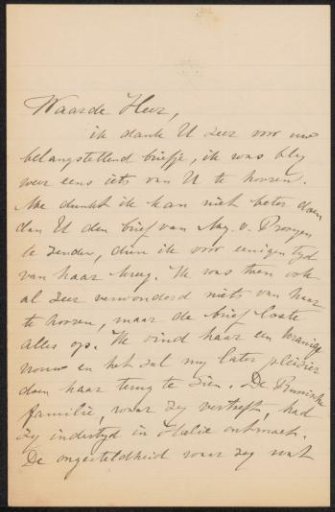 Waarde Heer,
ik dank U zeer voor uw
belangstellend briefje, ik was bly
weer eens iets van U te hooren.
Me dunkt ik kan niet beter doen
dan U den brief van Mej. v. Prooyen
te zenden, dien ik voor eenigen tyd
van haar kreeg. Ik was toen ook
al zeer verwonderd niets van haar
te hooren, maar de brief loste
alles op. Ik vind haar een
vrouw en het zal my later pleizier
doen haar terug te zien. De Russische
familie, waar zy vertoeft, had
zy indertyd in Italië ontmoet.
De ongesteldheid waar zy met